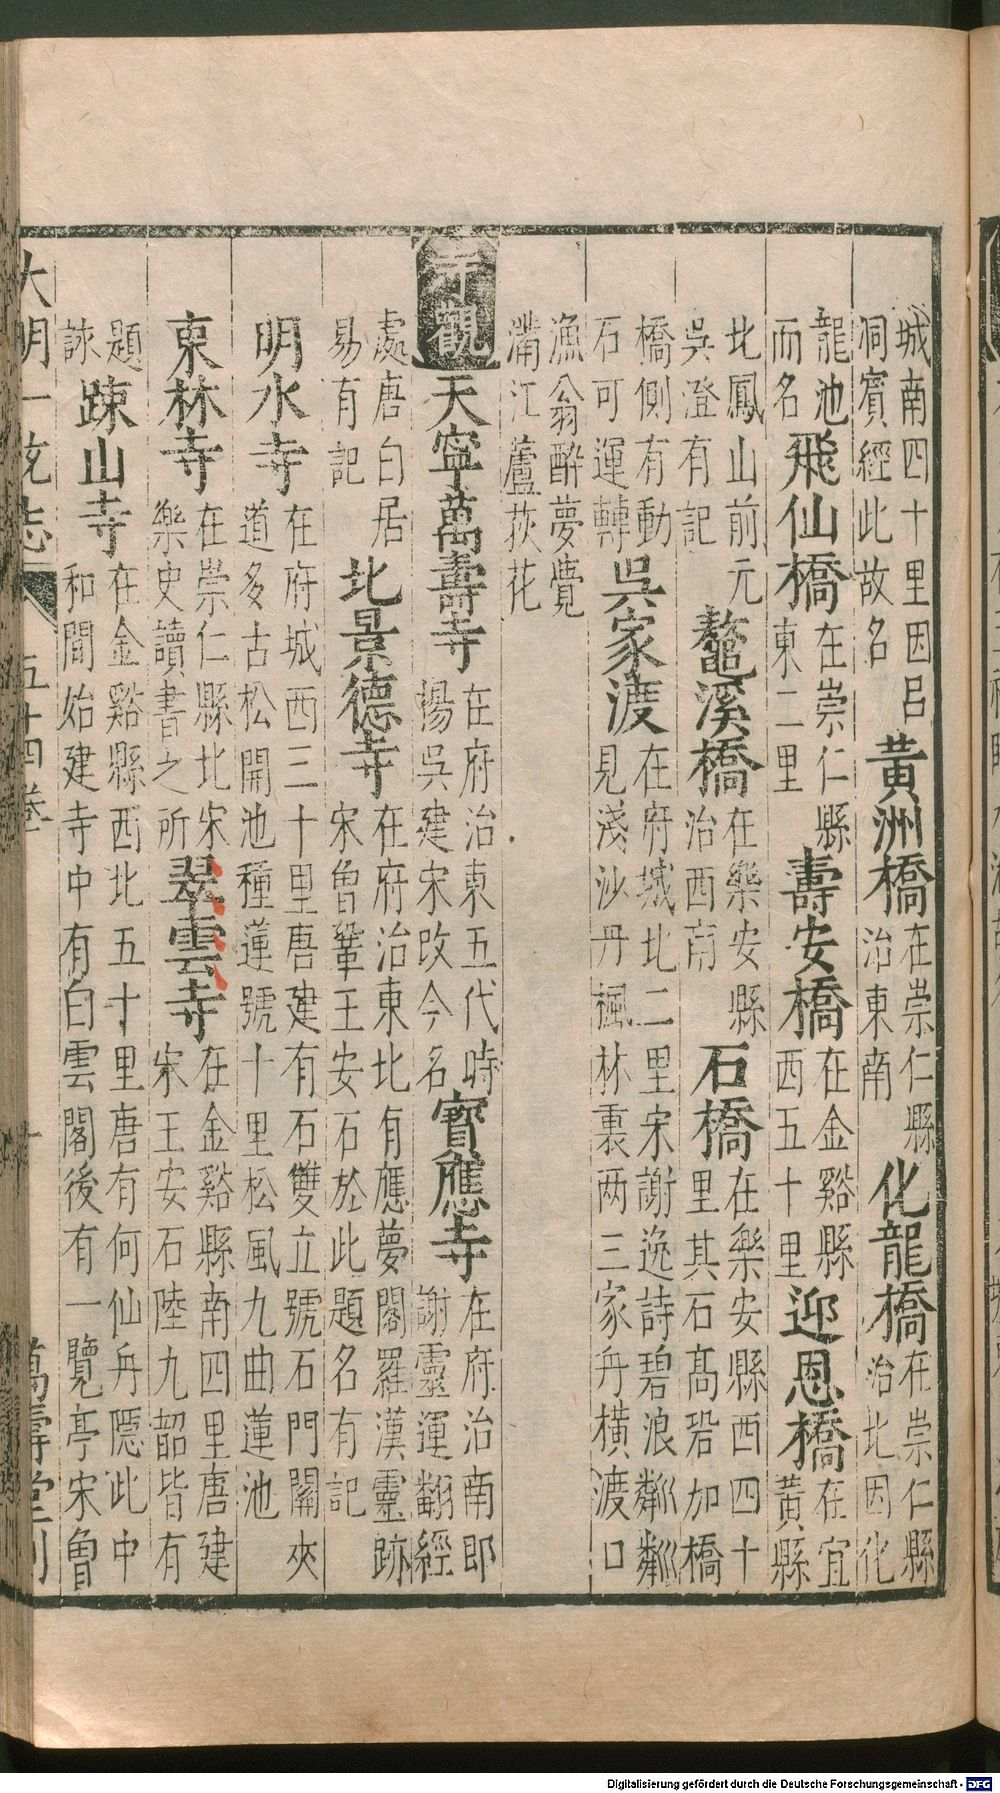 城南四十里因呂
洞賓經此故名
黃洲橋
在崇仁縣
治東南
化龍橋
在崇仁縣
治北因化
龍池
而名
飛仙橋
在崇仁縣
東二里
壽安橋
在金谿縣
西五十里
迎恩橋
在宜
黃縣
北鳳山前元
吳澄有記
鰲溪橋
在樂安縣
治西南
石橋
在樂安縣西四十
里其石高砻加橋
橋側有動
石可運轉
吳家渡
在府城北二里宋謝逸詩碧浪粼粼
見淺沙丹楓林裏两三家舟橫渡口
漁翁醉夢覺
滿江蘆荻花
寺觀
天寧萬壽寺
在府治東五代時
楊吳建宋改今名
寳應寺
在府治南即
謝靈運翻經
處唐白居
易有記
北景德寺
在府治東北有應夢閣羅漢靈跡
宋魯鞏王安石於此題名有記
明水寺
在府城西三十里唐建有石雙立號石門關夾
道多古松開池種蓮號十里松風九曲蓮池
東林寺
在崇仁縣北宋
樂史讀書之所
翠雲寺
在金谿縣南四里唐建
宋王安石陸九韶皆有
題
詠
踈山寺
在金谿縣西北五十里唐有何仙舟隱此中
和間始建寺中有白雲閣後有一覽亭宋魯
大明一统志
五十四卷
十
萬壽堂刊
Digitalisierung gefördert durch die Deutsche Forschungsgemeinschaft - DFG